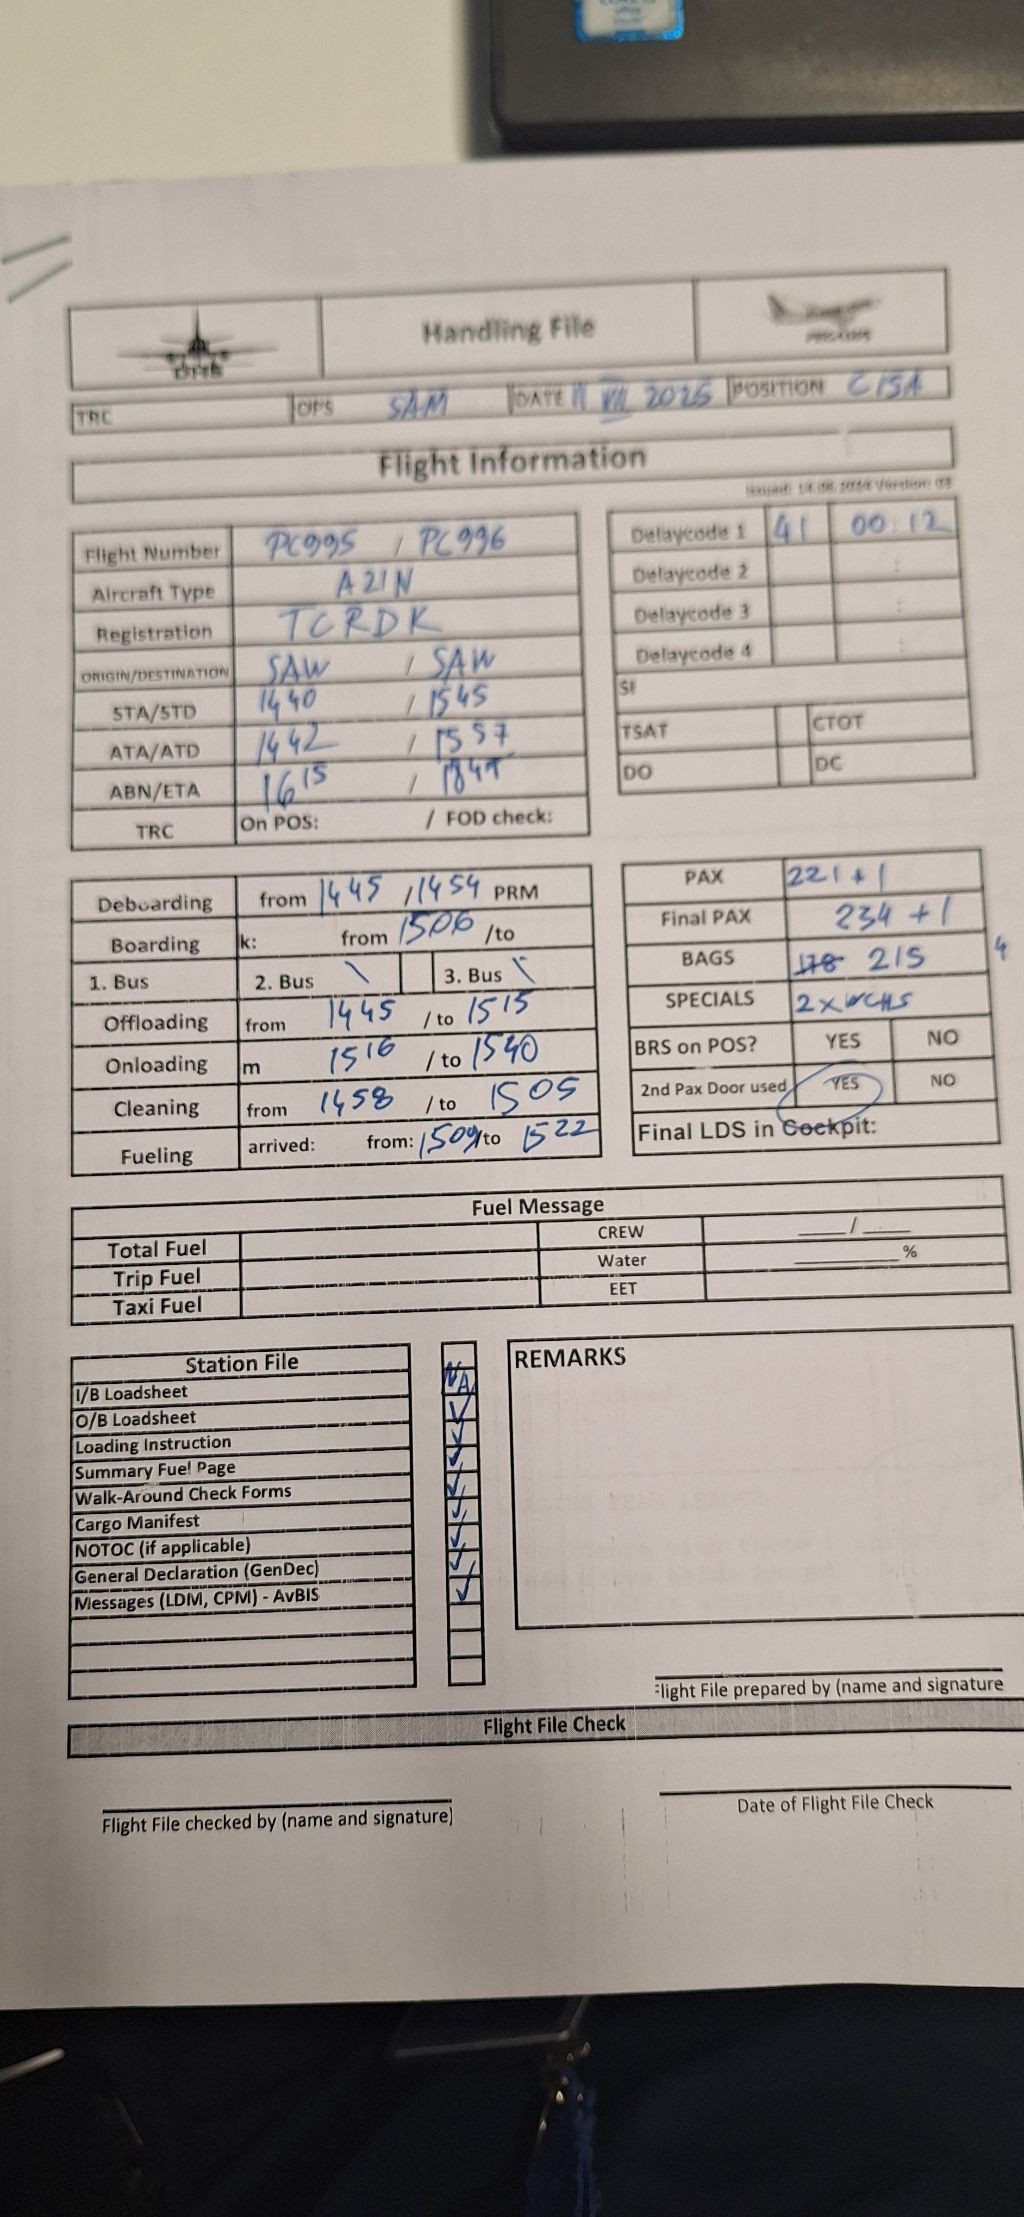 Handling File
TRC OPS SAM DATE 11 VII 2025 POSITION C15A
Flight Information
Flight Number PC995 / PC996
Aircraft Type A21N
Registration TCRDK
ORIGIN/DESTINATION SAW / SAW
STA/STD 1440 / 1545
ATA/ATD 1442 / 1557
ABN/ETA 1615 /
TRC On POS: / FOD check:
Delaycode 1 41 00:12
Delaycode 2 :
Delaycode 3 :
Delaycode 4 :
SI
TSAT CTOT
DO DC
Deboarding from 1445 / 1454 PRM
Boarding k: from 1506 /to
1. Bus 2. Bus \ 3. Bus \
Offloading from 1445 / to 1515
Onloading m 1516 / to 1540
Cleaning from 1458 / to 1505
Fueling arrived: from: 1509/to 1522
PAX 221+1
Final PAX 234+1
BAGS 178 215 4
SPECIALS 2xWCHS
BRS on POS? YES NO
2nd Pax Door used YES NO
Final LDS in Cockpit:
Fuel Message
Total Fuel CREW ___/___
Trip Fuel Water ___%
Taxi Fuel EET
Station File
I/B Loadsheet NA
O/B Loadsheet ✓
Loading Instruction ✓
Summary Fuel Page ✓
Walk-Around Check Forms ✓
Cargo Manifest ✓
NOTOC (if applicable) ✓
General Declaration (GenDec) ✓
Messages (LDM, CPM) - AvBIS ✓
REMARKS
Flight File prepared by (name and signature
Flight File Check
Flight File checked by (name and signature)
Date of Flight File Check